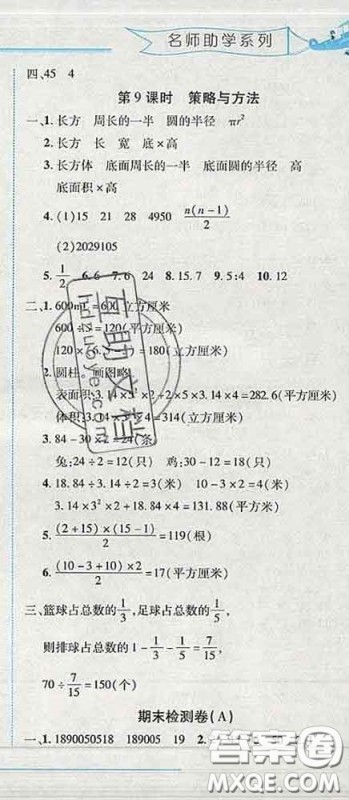 名师助学系列
四、45 4
第9课时 策略与方法
一、1. 长方 周长的一半 圆的半径 πr²
2. 长方 长 宽 底×高
3. 长方体 底面周长的一半 底面圆的半径 高
底面积×高
4. (1)15 21 28 4950 n(n-1)/2
(2)2029105
5. 1/2 6. 6 7. 6 24 8. 15.7 9. 5:4 10. 12
二、1. 600mL=600立方厘米
600÷ =120(平方厘米)
120× =180(立方厘米)
2. 圆柱。画图略
表面积:3.14× ×4+3.14× ×4=282.6(平方厘米)
体积:3.14× ×4=314(立方厘米)
3. 84-30×2=24(条)
兔:24÷2=12(只) 鸡:30-12=18(只)
4. 18.84÷3.14÷2=3(米)
3.14×3²+18.84×2×2=131.88(平方米)
5. (2+15)×(15-1)/2=119(根)
6. (10-3+10)×2/2=17(平方厘米)
三、篮球占总数的1/3,足球占总数的1/5,
则排球占总数的1-1/3-1/5=7/15,
70÷7/15=150(个)
期末检测卷(A)
一、1. 1890050518 189005 19 2.
互助文档
答案圈
MXQE.COM